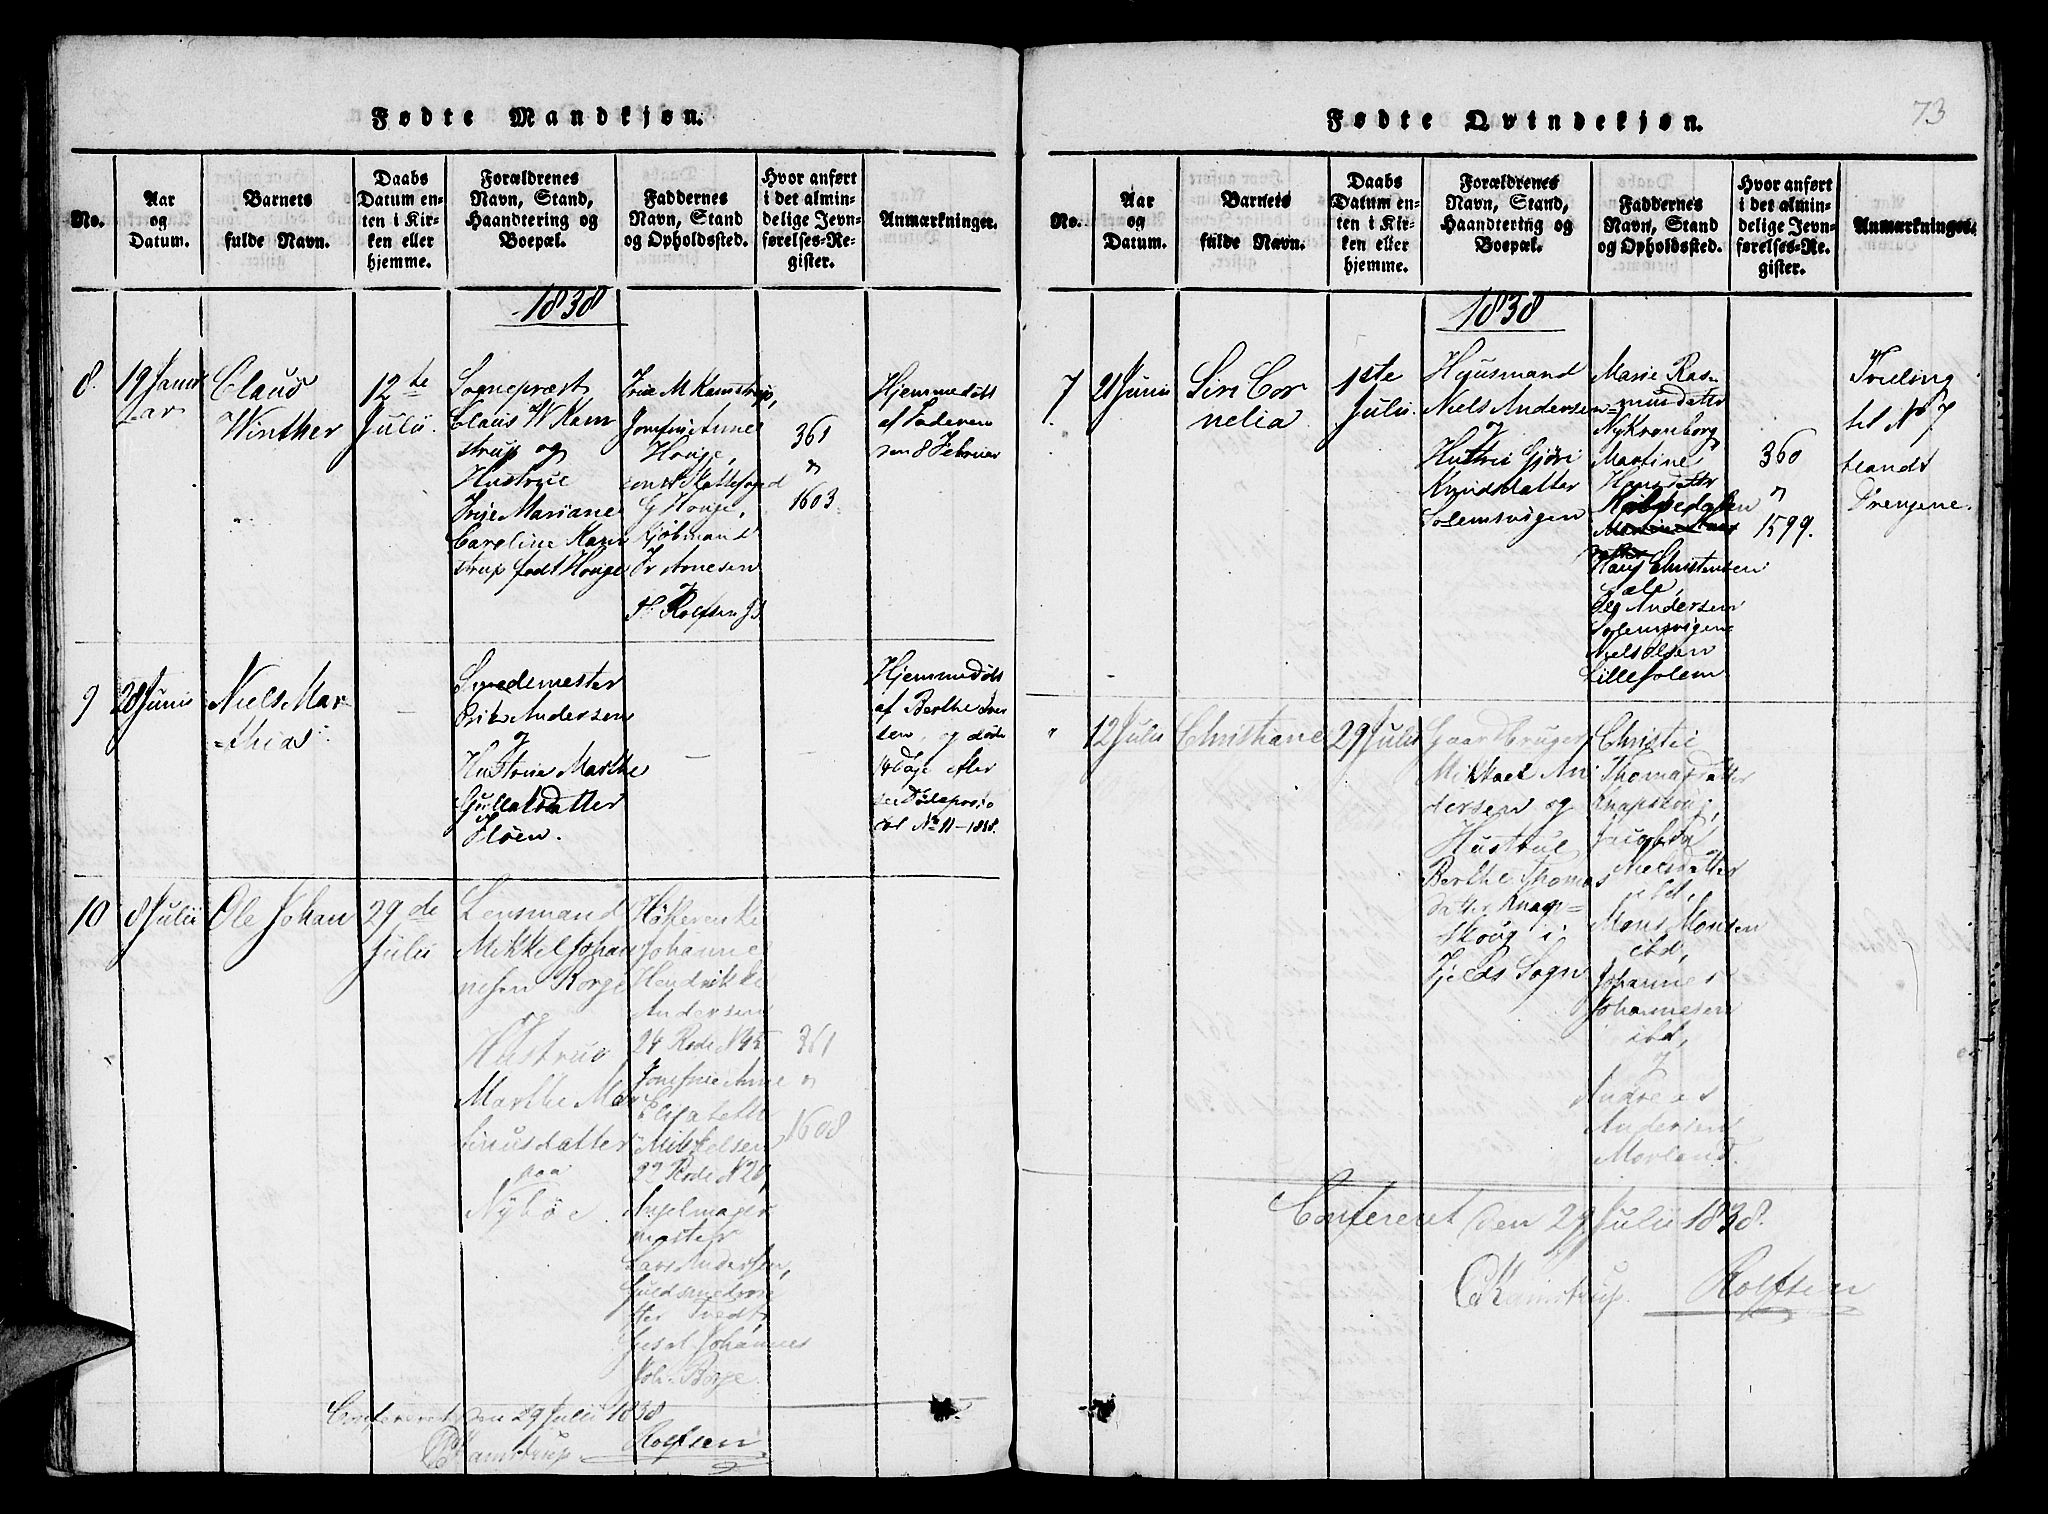 Fødte Mandkjøn.
No.
Aar
og
Datum.
Barnets
fulde Navn.
Daabs
Datum en-
ten i Kir-
ken eller
hjemme.
Forældrenes
Navn, Stand,
Haandtering og
Boepæl.
Faddernes
Navn, Stand
og Opholdssted.
Hvor anført
i det almin-
delige Jevn-
førelses-Re-
gister.
Anmærkninger.
1838
8.
19 Janu
ar
Claus
Winther
12te
Julii.
Sognepræst
Claus W Kam
strup og
Hustrue
Mariane
Caroline Kam
strup født Houge
M Kamstrup,
Anne
Houge,
G Houge,
Kjøbmand
Arnesen
og
Rolfsen
361
"
1603
Hjemmedøbt
af Faderen
den 8 Februar
9
28 Junii
Niels Mar
=thias
-
Erik Andersen
og
Hustrue Marthe
datter
Fløen.
-
-
Hjemmedøbt
af Berthe Iver
sen, og døde
14 Dage efter
No 11-1838.
10
8 Julii
Ole Johan
29de
Julii
Lensmand
Mikkel Johan
nesen Korge
og
Hustrue
Marthe Mar
datter
paa
Nybøe
Johanne
Hendrikke
Andersen
24 Rode N 45
Anne
Elisabeth
Mikkelsen
22 Rode N 26,
mester
Lars Andersen,
Johannes
361
"
1608
Confereret den 29 Julii 1838
CWKamstrup Rolfsen
Fødte Qvindekjøn.
73
No.
Aar
og
Datum.
Barnets
fulde Navn.
Daabs
Datum en-
ten i Kir-
ken eller
hjemme.
Forældrenes
Navn, Stand,
Haandtering og
Boepæl.
Faddernes
Navn, Stand
og Opholdssted.
Hvor anført
i det almin-
delige Jevn-
førelses-Re-
gister.
Anmærkninger.
1838
7.
21 Junii
Siri Cor
nelia
1ste
Julii.
Huusmand
Niels Andersen
og
Hustrue Gjøri
Knudsdatter
Solemsvigen
Marie Ras-
musdatter
Nykronborg
Martine
Hansdatter
Hans Christensen
Ole Andersen
Solemsvigen
Niels Olsen
Lille Solem
360
"
1599.
Tvilling
til N 7
blandt
Drengene.
"
12 Julii
Christiane
29 Julii
Gaardbruger
Mikkael An
dersen og
Hustrue
Berthe Thomas
datter Knap=
skoug i
Fjelds Sogn
Christie
Thomasdatter
Knapskoug,
Nielsdatter
ibd,
Mons Monsen
ibd,
Johannes
Johannesen
ibd,
og
Andreas
Andersen
Morland.
Confereret den 29 Julii 1838.
CWKamstrup. Rolfsen